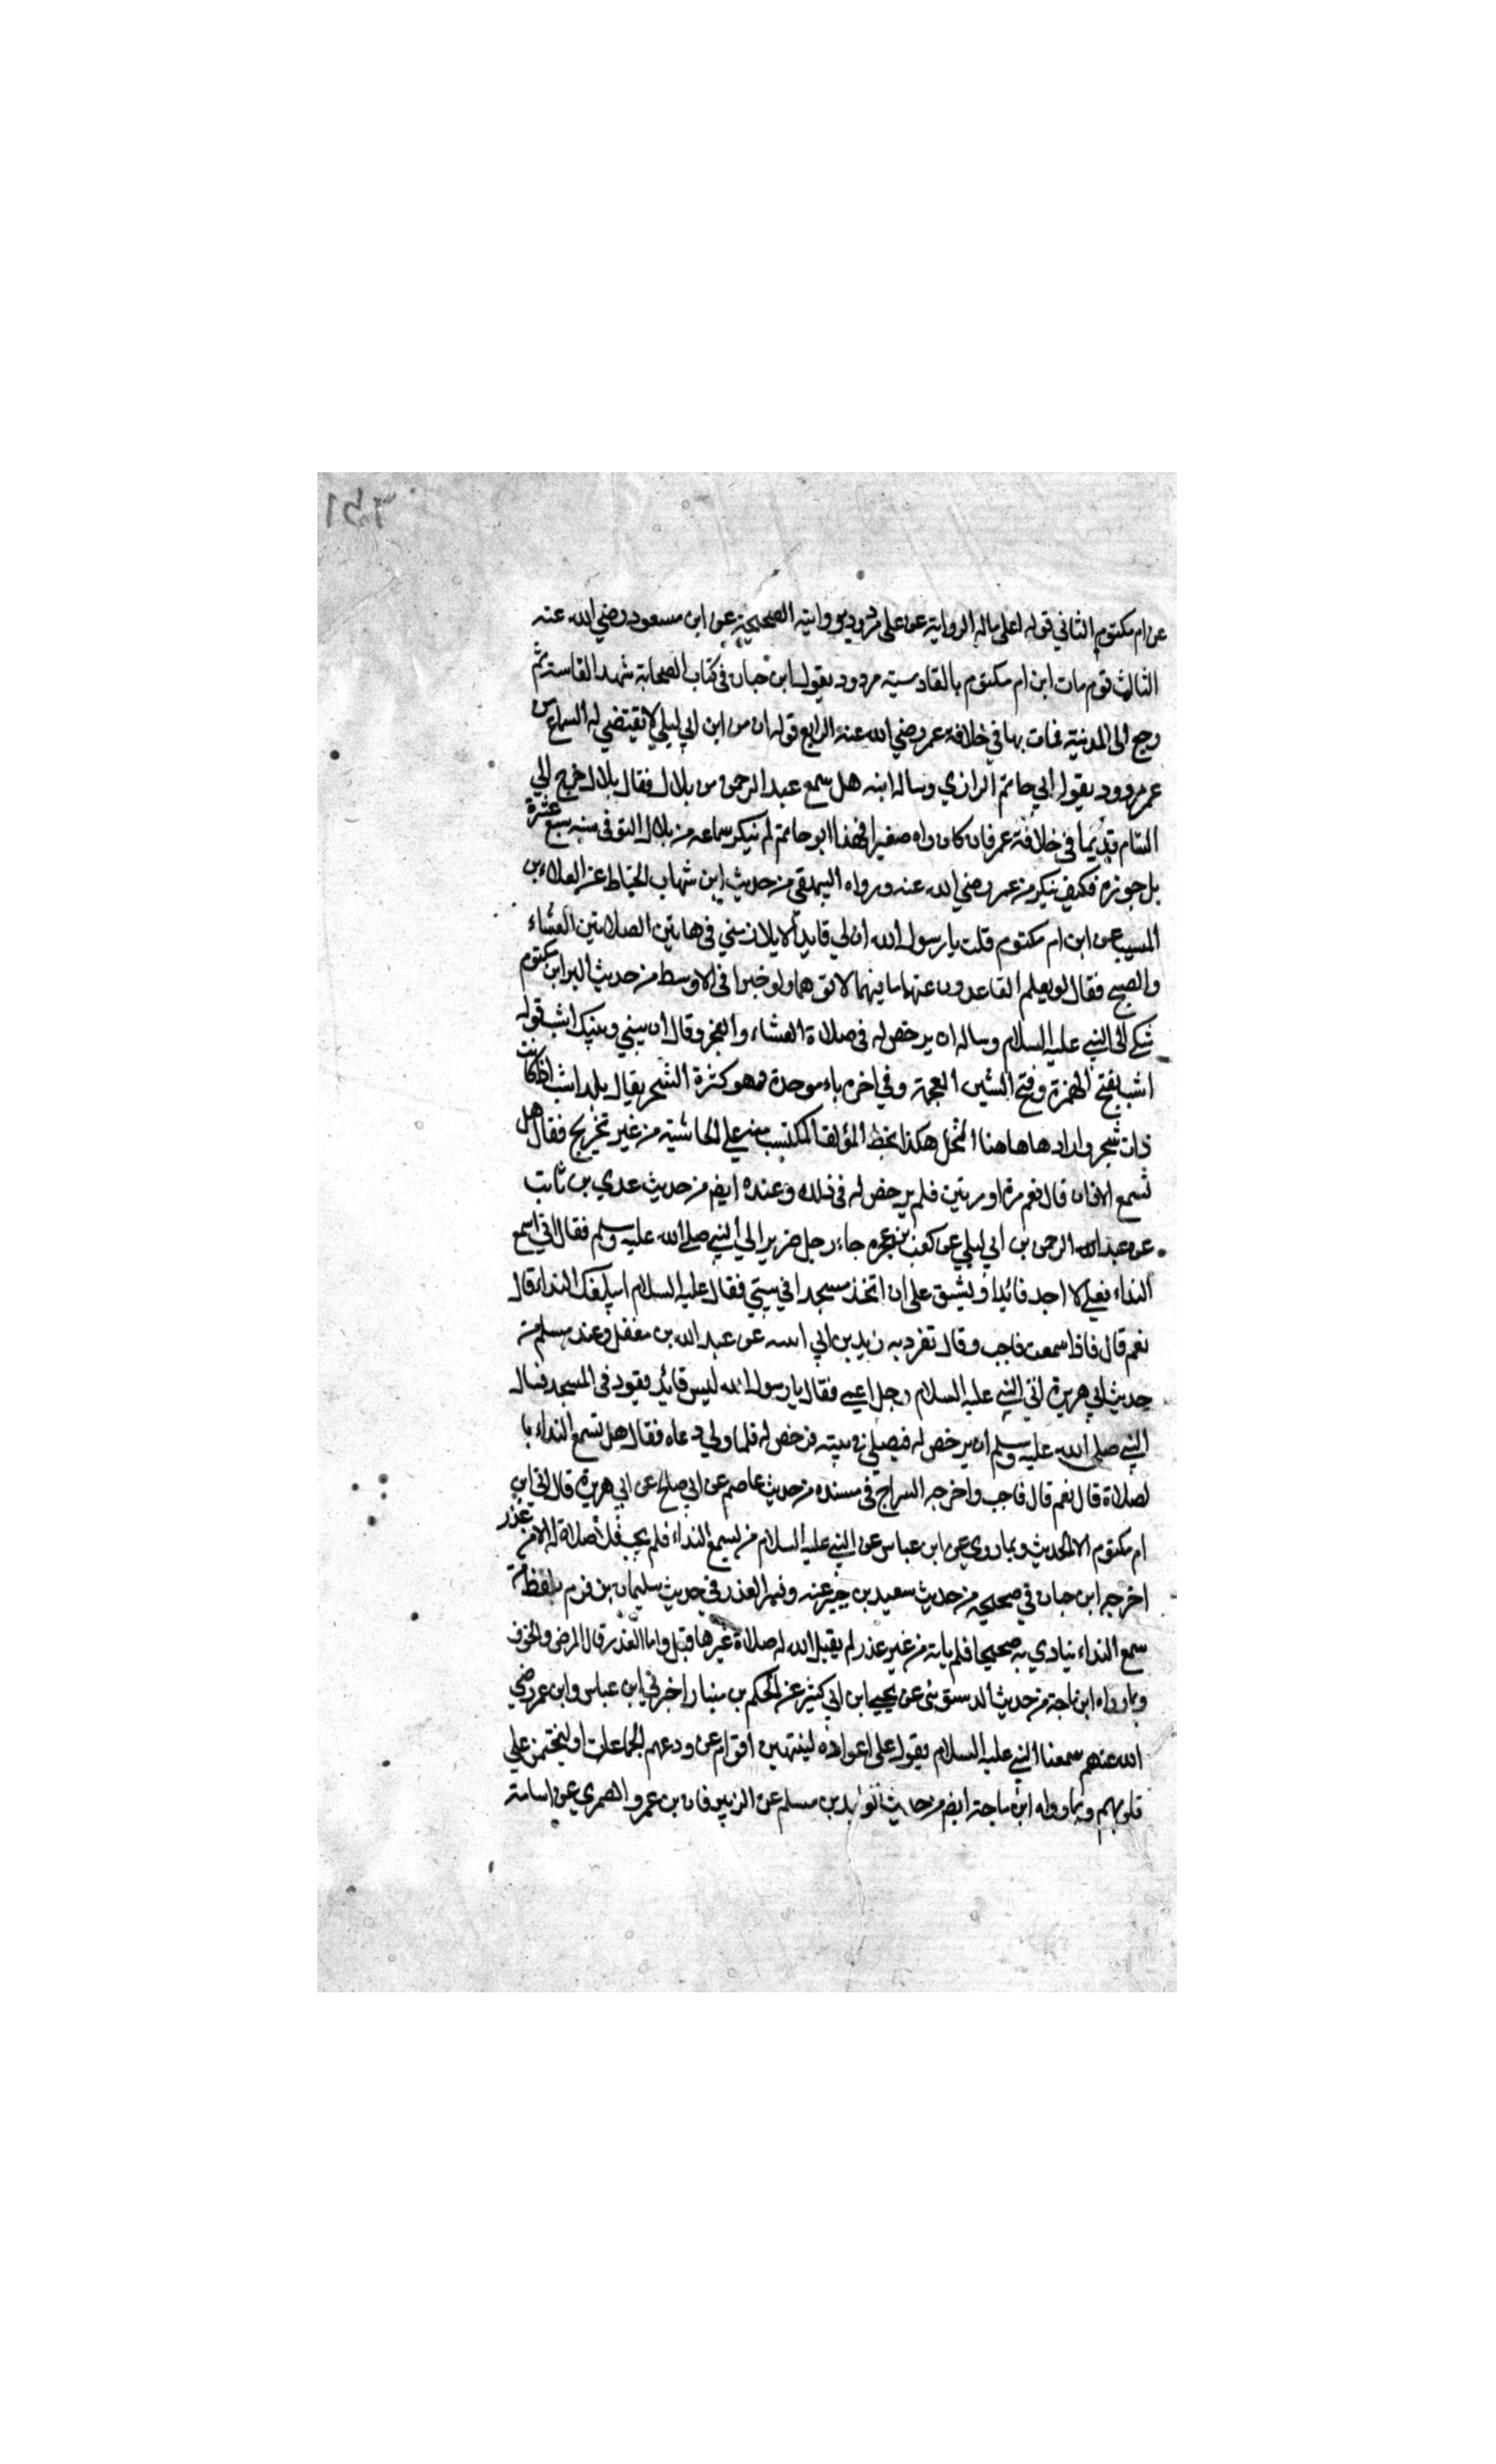 عن ام مكتوم الثاني قوله اعلى ماله الرواية عن على مردود بروايته الصحيحة عن ابن مسعود رضي الله عنه
الثالث قوم مات ابن ام مكتوم بالقادسية مردود بقول ابن حبان في كتاب الصحابة شهد القاسة ثم
رجع الى المدينة فمات بها في خلافة عمر رضي الله عنه الرابع قوله ان من ابن ابي ليلي لا تقتضي له السماع من
عمر مردود بقول ابي حاتم الرازي وساله ابنه هل سمع عبد الرحمن من بلال فقال بلال خرج الي
الشام قديما في خلافة عمر فان كان راه صغيرا فهذا ابو حاتم لم ينكر سماعه من بلال المتوفى سنة سبع عشرة
بل جوزه فكيف ينكر من عمر رضي الله عنه ورواه البيهقي من حديث ابن شهاب الحناط عن العلاء بن
المسيب عن ابن ام مكتوم قلت يا رسول الله ان لي قايدا لا يلازمني في هاتين الصلاتين العشاء
والصبح فقال لو يعلم القاعدون عنهما ما فيهما لاتوهما ولو حبوا في الاوسط من حديث البرا ابن مكتوم
شكي الى النبي عليه السلام وساله ان يرخص له في صلاة العشاء والفجر وقال ان بيني وبينك اشب قوله
اشب بفتح الهمزة وفتح الشين المعجمة وفي اخره باء موحدة وهو كثرة الشجر يقال بلد اشب اذا كانت
ذات شجر واراد هاهنا النخل هكذا بخط المؤلف المكتسب منه على الحاشية من غير تخريج فقال هل
تسمع الاذان قال نعم مرة او مرتين فلم يرخص له في ذلك وعنده ايضم من حديث عدي بن ثابت
عن عبد الله الرحمن بن ابي ليلي عن كعب بن عجرة جاء رجل ضرير الى النبي صلى الله عليه وسلم فقال اني اسمع
النداء فعلي لا اجد قائدا ويشق على ان اتخذ مسجدا في بيتي فقال عليه السلام ايبلغك النداء قال
نعم قال فاذا سمعت فاجب وقال تفرد به زيد بن ابي انيسه عن عبد الله بن مغفل وعند مسلم من
حديث ابي هريرة اتى النبي عليه السلام رجل اعمى فقال يا رسول الله ليس قائد يقود في المسجد فسال
النبي صلى الله عليه وسلم ان يرخص له فيصلي في بيته فرخص له فلما ولي دعاه فقال هل تسمع النداء با
لصلاة قال نعم قال فاجب واخرجه السراج في مسنده من حديث عاصم عن ابي صالح عن ابي هريرة قال اتى ابن
ام مكتوم الا الحديث وبما روي عن ابن عباس عن النبي عليه السلام من لسمع النداء فلم يجب فلا صلاة له الا من عذر
اخرجه ابن حبان في صحيحه من حديث سعيد بن جبير عنه وفسر العذر في حديث سليمان بن قرم بلفظ من
سمع النداء ينادي به صحيحا فلم ياته من غير عذر لم يقبل الله له صلاة غيرها قيل واما العذر قال المرض والخوف
وبما رواه ابن ماجة من حديث الدستوئى عن يحيى ابن ابي كثير عن الحكم بن مينا راخبرني ابن عباس وابن عمر رضي
الله عنهم سمعنا النبي عليه السلام يقول على اعواده لينتهين اقوام عن ودعهم الجماعات او ليختمن على
قلوبهم وبما رواه ابن ماجة ايضم من حديث الوليد بن مسلم عن الزبرقان بن عمرو الضمري عن اسامة